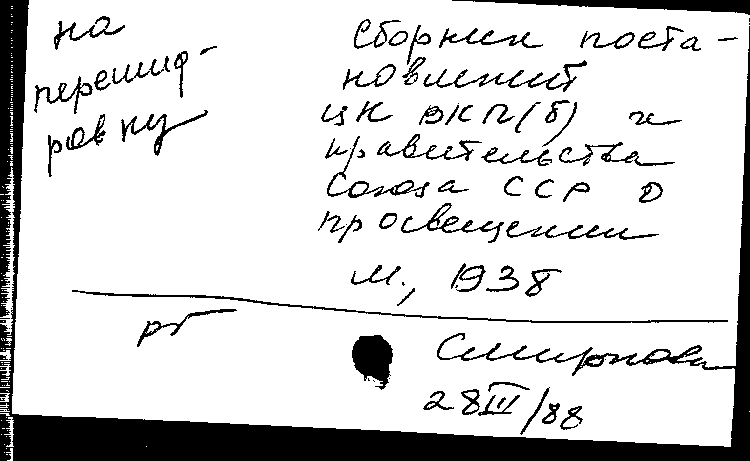 на
перешиф-
ровку
Сборник поста-
новлений
ЦК ВКП(б) и
правительства
Союза ССР о
просвещении
М., 1938
рг
Смирнова
28III/88